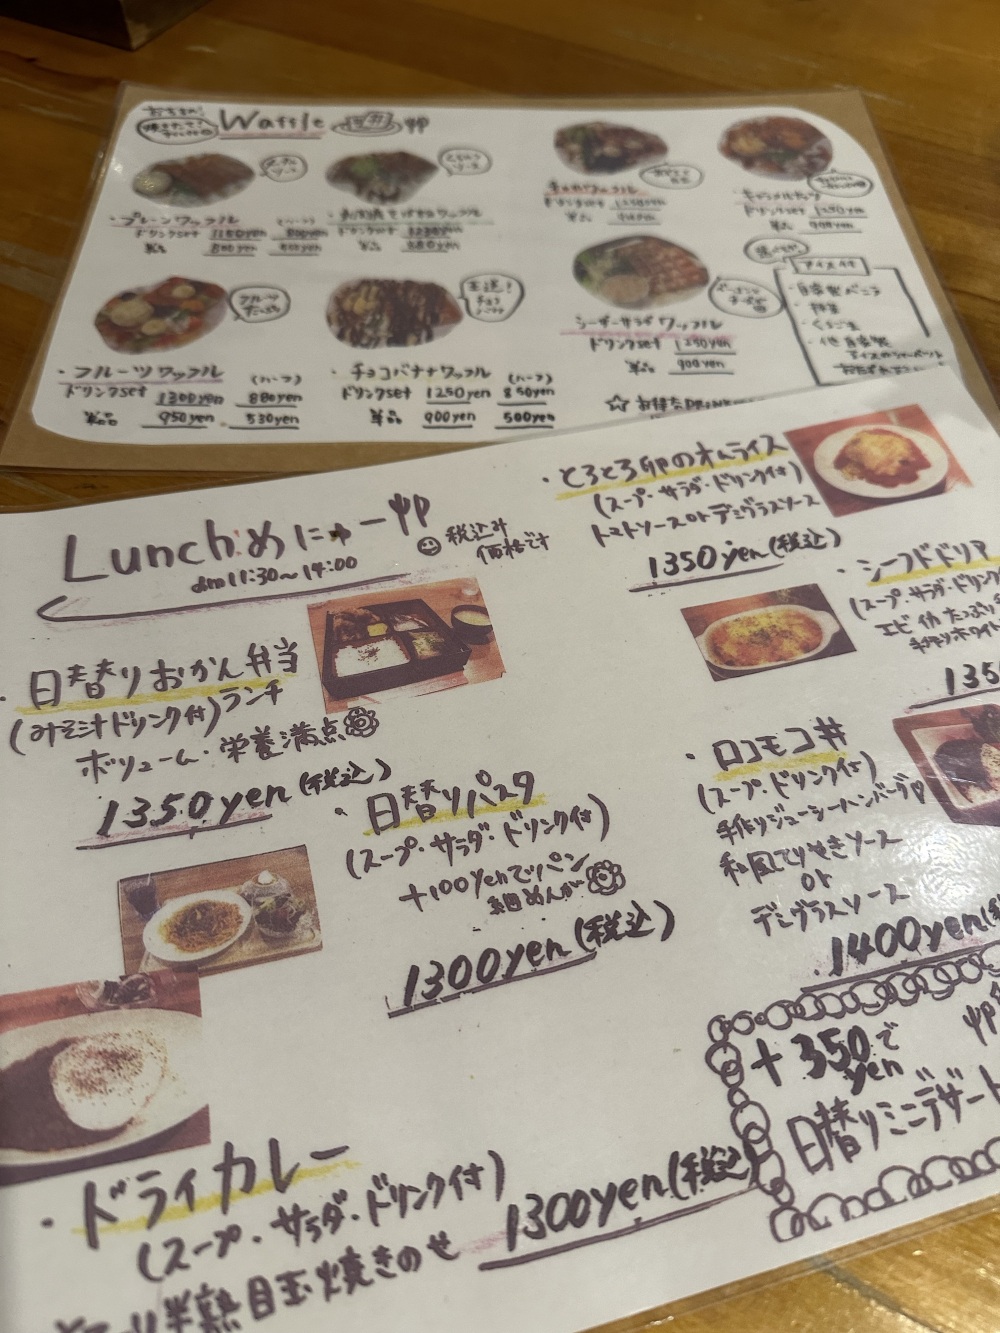 Waffle
・プレーンワッフル
ドリンクset 1150yen
単品 800yen
ドリンクset
単品
ドリンクset
単品
ドリンクset 1250yen
単品 900yen
フルーツ
たっぷり
・フルーツワッフル (ハーフ)
ドリンクset 1300yen 880yen
単品 950yen 530yen
王道！
チョコ
バナナ
・チョコバナナワッフル (ハーフ)
ドリンクset 1250yen 850yen
単品 900yen 500yen
シーザーサラダワッフル
ドリンクset 1250yen
単品 900yen
アイス付
・自家製バニラ
・くろごま
・他自家製
Lunchめにゅー
am11:30〜14:00
税込み
価格です
・日替りおかん弁当
(みそ汁ドリンク付)ランチ
ボリューム・栄養満点
1350yen(税込)
・日替りパスタ
(スープ・サラダ・ドリンク付)
+100yenでパン
1300yen(税込)
・ドライカレー
(スープ・サラダ・ドリンク付)
半熟目玉焼きのせ
1300yen(税込)
・とろとろ卵のオムライス
(スープ・サラダ・ドリンク付)
トマトソースorデミグラスソース
1350yen(税込)
・シーフドドリア
(スープ・サラダ・ドリンク
エビ・イカたっぷり
手作りホワイト
135
・ロコモコ丼
(スープ・ドリンク付)
手作りジューシーハンバーグ
和風てりやきソース
or
デミグラスソース
1400yen(税
+350yenで
日替りミニデザート